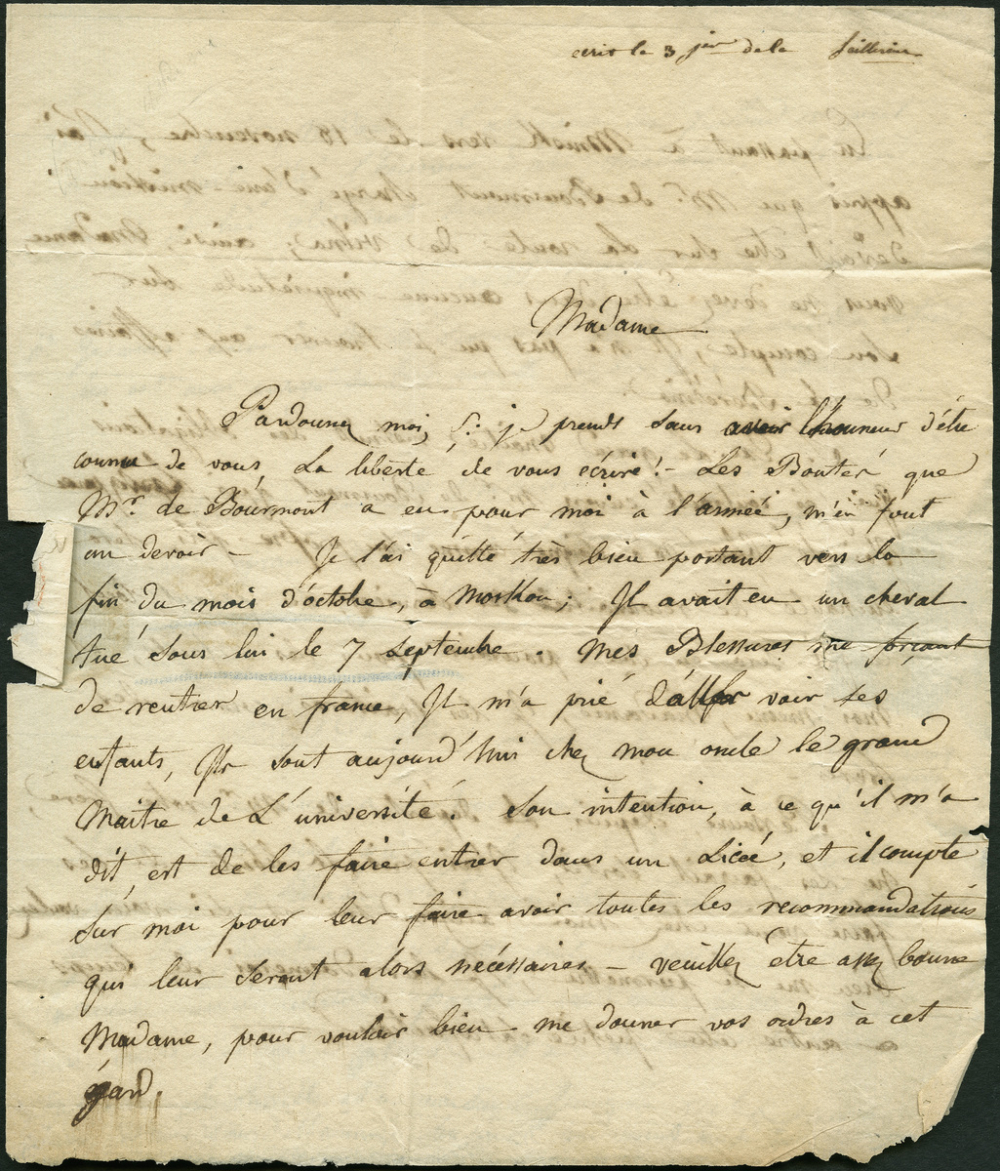 écrit le 3 jer de la
Madame
Pardonnez moi, si je prends sans avoir l'honneur d'être
connue de vous la liberté de vous écrire! - Les Bontés que
Mr. de Bourmont a eu pour moi à l'armée, m'en font
un devoir - Je l'ai quitté très bien portant vers la
fin du mois d'octobre, à Moskou; Il avait eu un cheval
tué sous lui le 7 septembre. Mes Blessures me forçant
de rentrer en france, Il m'a prié d'aller voir ses
enfants, Ils sont aujourd'hui chez mon oncle le grand
Maitre de L'université. Son intention, à ce qu'il m'a
dit, est de les faire entrer dans un Licée, et il compte
sur moi pour leur faire avoir toutes les recommandations
qui leur seront alors nécessaires - veuillez être assez bonne
Madame, pour vouloir bien me donner vos ordres à cet
égard.